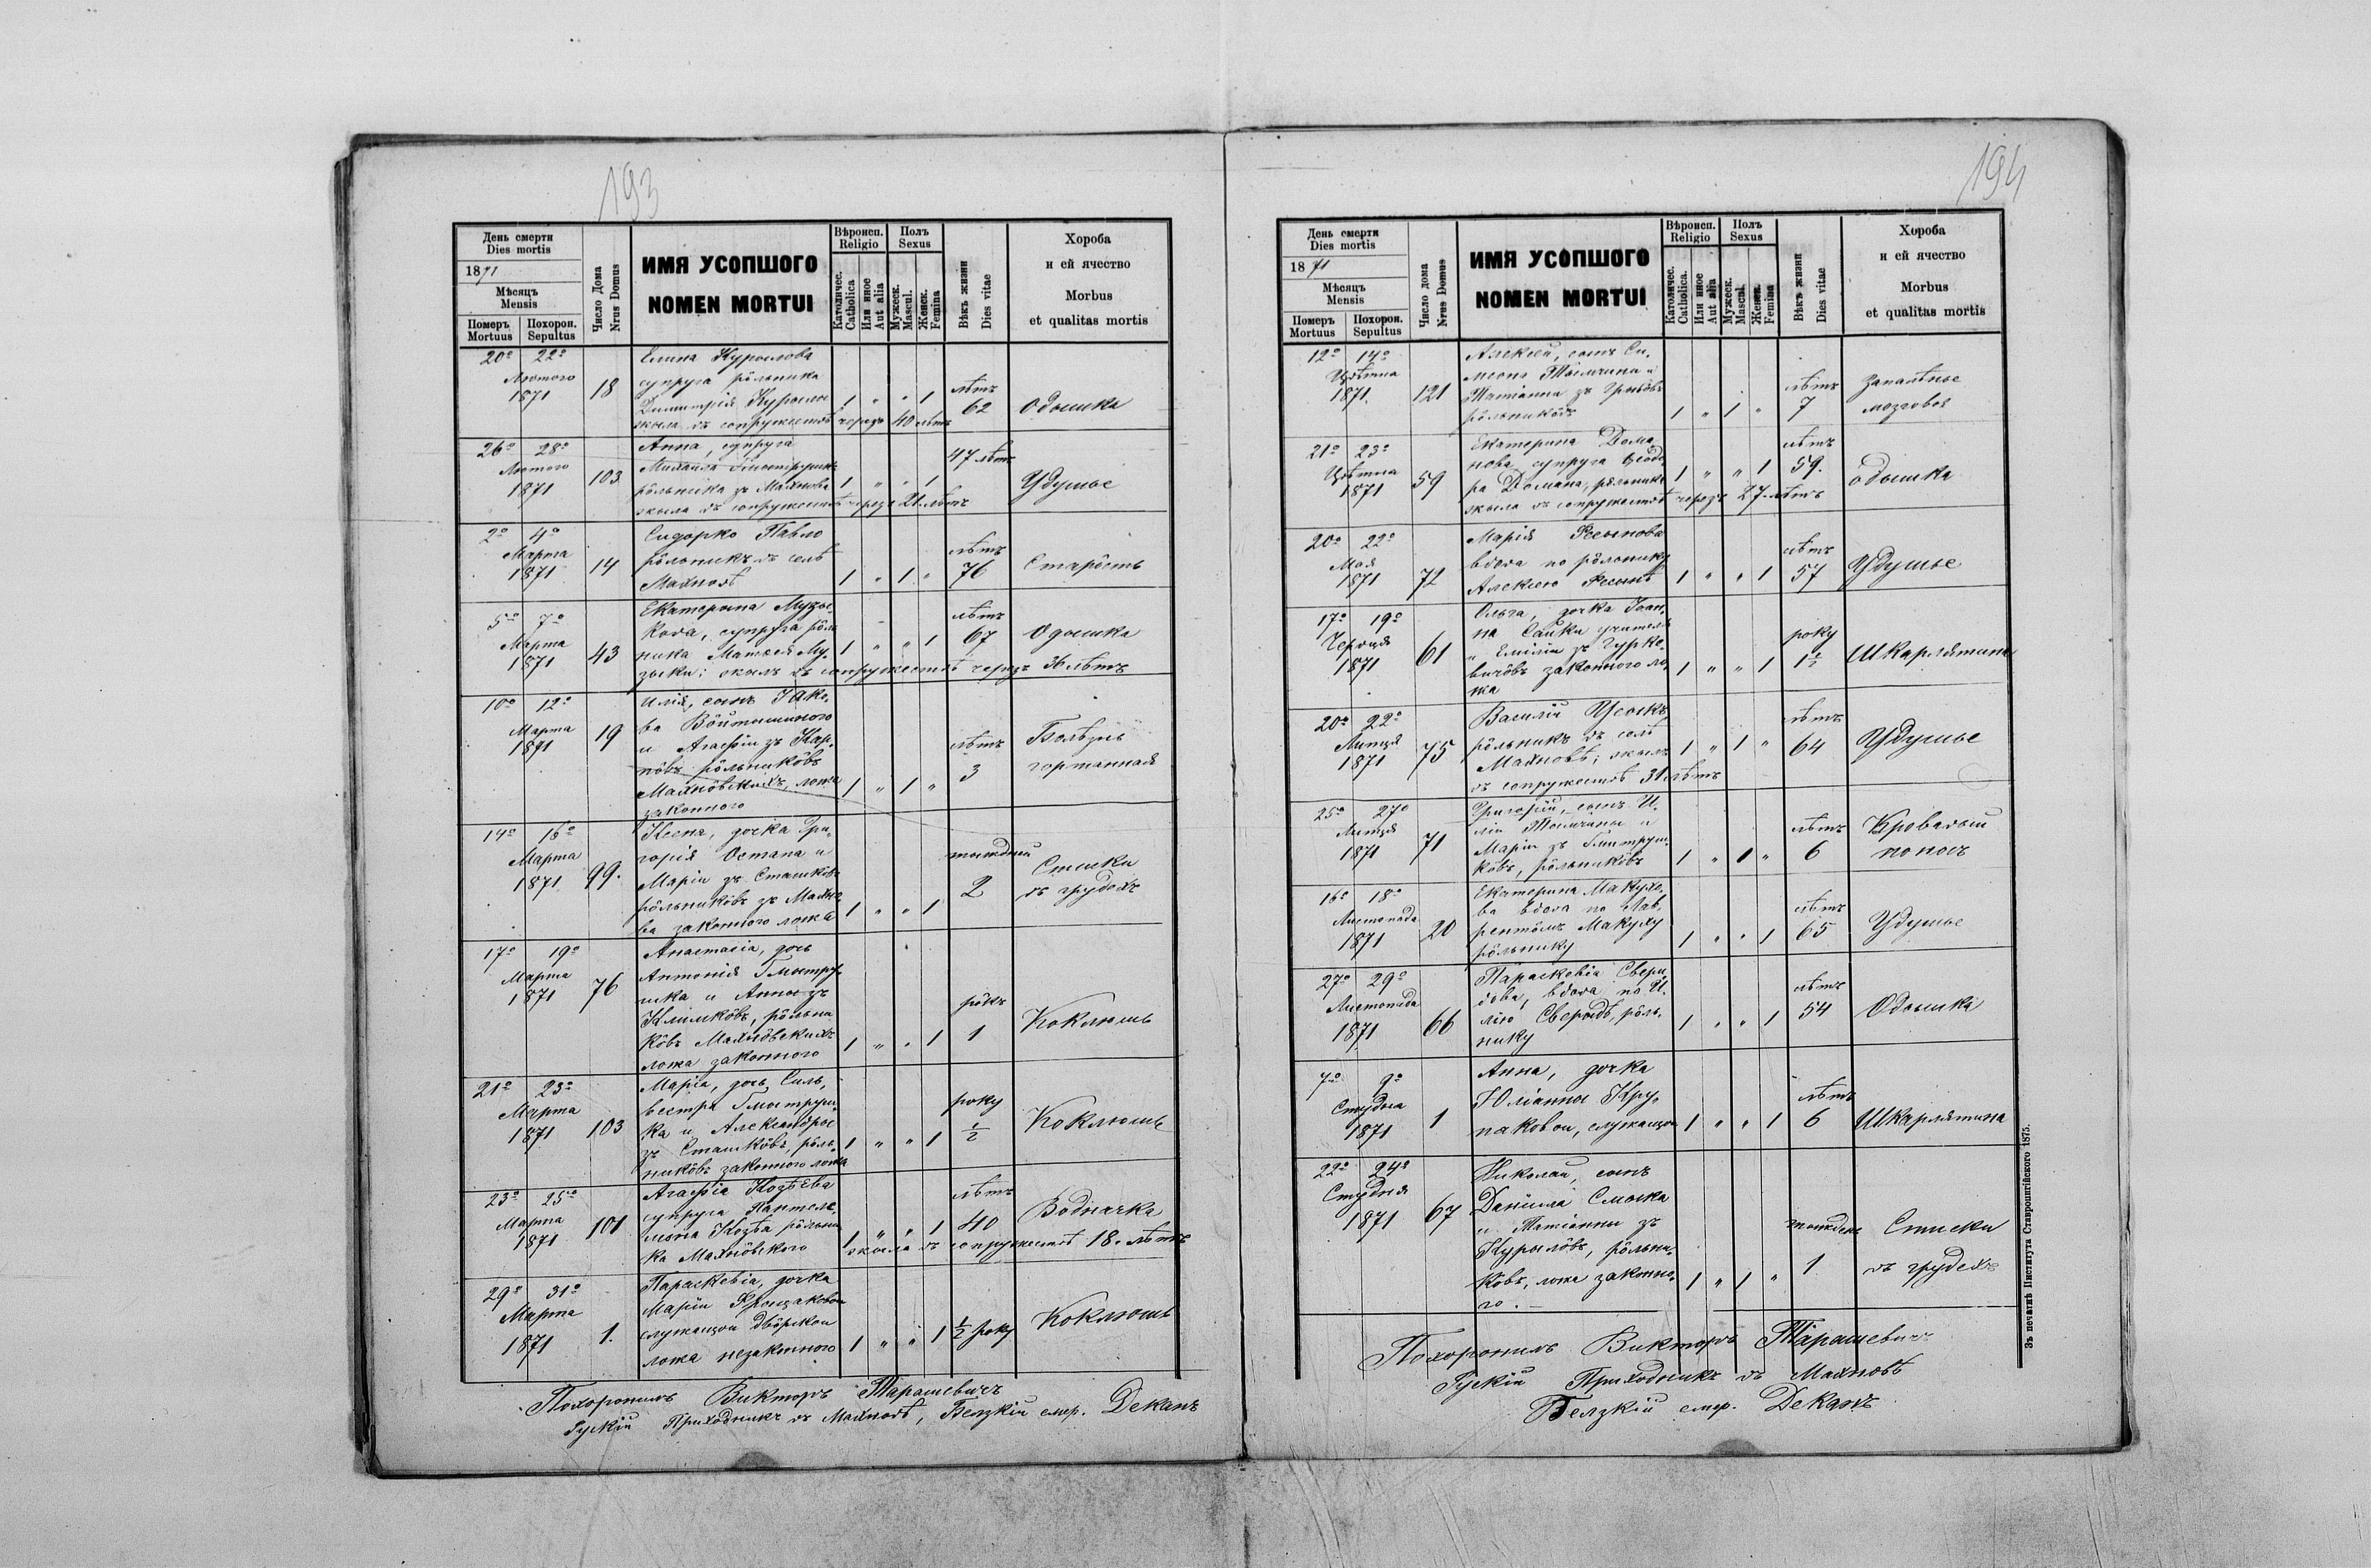 193
День смерти
Dies mortis
1871
Мѣсяць
Mensis
Померъ Похорон.
Mortuus Sepultus
Число Дома
Nrus Domus
ИМЯ УСОПШОГО
NOMEN MORTUI
Вѣроисп.
Religio
Католичес.
Catholica
Или иное
Aut alia
Полъ
Sexus
Мужеск.
Mascul.
Женск.
Femina
Вѣкъ жизни
Dies vitae
Хороба
и ей ячество
Morbus
et qualitas mortis
20º 22º
Лютого
1871
18
Елина Курылова
супруга рôльника
Димитрія Курыла
жыла въ сопружествѣ черезъ 40 лѣтъ
1 " " 1
лѣтъ
62
Одышка
26º 28º
Лютого
1871
103
Анна, супруга
Михаила Гмытрушка
рôльника зъ Махнова
жыла въ сопружествѣ черезъ 21 лѣтъ
1 " " 1
47 лѣтъ
Удушье
2º 4º
Марта
1871
14
Сидорко Павло
рôльникъ въ селѣ
Махновѣ
1 " 1 "
лѣтъ
76
Старôсть
5º 7º
Марта
1871
43
Екатерына Музы-
кова, супруга рôль
ника Матвея Му-
зыки; жылъ въ сопружествѣ черезъ 36 лѣтъ
1 " " 1
лѣтъ
67
Одышка
10º 12º
Марта
1871
19
Илія, сынъ Яко-
ва Вôйтышиного
и Агафіи зъ Кар-
пôвъ рôльникôвъ
Махнôвскихъ, ложа
законного
1 " 1 "
лѣтъ
3
Болѣзнь
гортанная
14º 16º
Марта
1871
99.
Ксена, дочка Гри-
горія Остапа и
Маріи зъ Сташкôвъ
рôльникôвъ зъ Махно
ва законного ложа
1 " " 1
тыждни
2
Стиски
въ грудехъ
17º 19º
Марта
1871
76
Анастасіа, дочь
Антонія Гмытру-
шка и Анны зъ
Климкôвъ, рôльни
кôвъ Махнôвскихъ
ложа законного
1 " " 1
рôкъ
1
Коклюшъ
21º 23º
Марта
1871
103
Маріа, дочь Силь-
вестра Гмытруш-
ка и Александры
зъ Сташкôвъ, рôль-
никôвъ законного ложа
1 " " 1
року
½
Коклюшъ
23º 25º
Марта
1871
101
Агафіа Козѣева
супруга Пантеле-
мона Козѣя рôльни
ка Махнôвского
жыла въ сопружествѣ 18. лѣтъ
1 " " 1
лѣтъ
40
Водначка
29º 31º
Марта
1871
1.
Параскевіа, дочка
Маріи
служащои двôрскои
ложа незаконного
1 " " 1
½ року
Коклюшъ
Похоронилъ Викторъ Тарашевичъ
Рускій Приходникъ въ Махновѣ, Белзкій емер. Деканъ
194
День смерти
Dies mortis
1871
Мѣсяць
Mensis
Померъ Похорон.
Mortuus Sepultus
Число дома
Nrus Domus
ИМЯ УСОПШОГО
NOMEN MORTUI
Вѣроисп.
Religio
Католичес.
Catholica.
Или иное
Aut alia
Полъ
Sexus
Мужеск.
Mascul.
Женск.
Femina
Вѣкъ жизни
Dies vitae
Хороба
и ей ячество
Morbus
et qualitas mortis
12º 14º
Цвѣтня
1871
121
Алексей, сынъ Си-
меона Тымчины и
Татіанны зъ Грыбôвъ
рôльникôвъ
1 " 1 "
лѣтъ
7
Запалѣнье
мозговое
21º 23º
Цвѣтня
1871
59
Екатерина Дома-
нова, супруга Ѳеодо
ра Домана, рôльника
жыла въ сопружествѣ черезъ 27 лѣтъ
1 " " 1
лѣтъ
59.
одышка
20º 22º
Мая
1871
72
Марія
вдова по рôльнику
Алексею
1 " " 1
лѣтъ
57
Удушье
17º 19º
Червця
1871
61
Ольга, дочка Іоан-
на Сайки учителя
и Емиліи зъ Гурке-
вичôвъ законного ло-
жа
1 " " 1
року
1½
Шкарлятина
20º 22º
Липця
1871
75
Василій Усыкъ,
рôльникъ въ селѣ
Махновѣ; жылъ
въ сопружествѣ 31 лѣтъ
1 " 1 "
лѣтъ
64
Удушье
25º 27º
Липця
1871
71
Григорій, сынъ И-
ліи Тымчины и
Маріи зъ Гмитруш-
кôвъ, рôльникôвъ
1 " 1 "
лѣтъ
6
Кровавый
поносъ
16º 18º
Листопада
1871
20
Екатерина Макухо-
ва вдова по Лав-
рентômъ Макуху
рôльнику
1 " " 1
лѣтъ
65
Удушье
27º 29º
Листопада
1871
66
Параскевіа Свери-
дова, вдова по И-
лію Сверыдѣ, рôль-
нику
1 " " 1
лѣтъ
54
Одышка
7º 9º
Студня
1871
1
Анна, дочка
Юліанны Кру-
паковои, служащои
1 " " 1
лѣтъ
6
Шкарлятина
22º 24º
Студня
1871
67
Николай, сынъ
Даніила Смыка
и Татіанны зъ
Курылôвъ, рôльни-
кôвъ, ложа законно-
го.
1 " 1 "
тыждень
1
Стиски
въ грудехъ
Похоронилъ Викторъ Тарашевичъ
Рускій Приходникъ въ Махновѣ
Белзкій емер. Деканъ
Зъ печатнѣ Института Ставропигійского 1875.